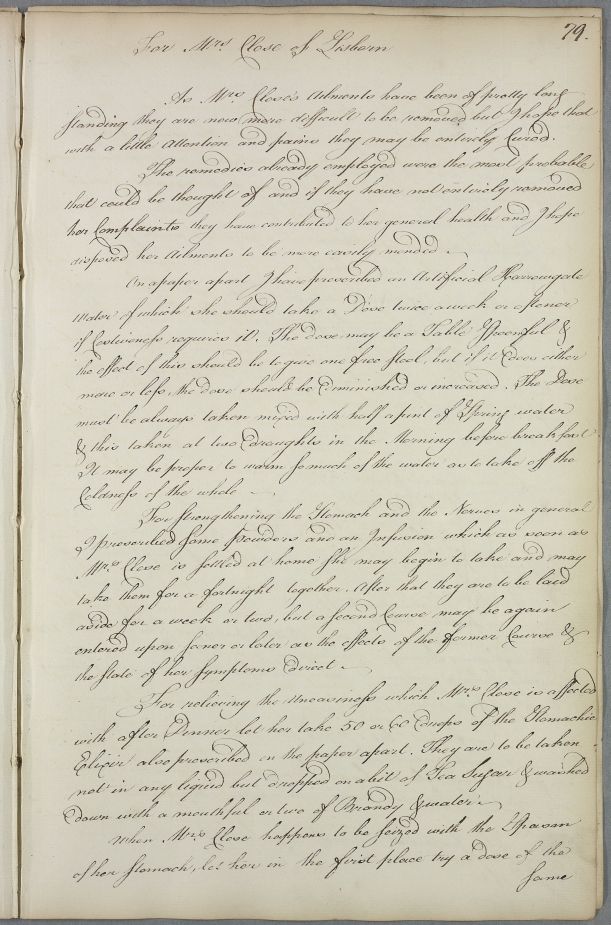 79.
For Mrs Close of Lisborn
As Mrs. Close's Ailments have been of pretty long
standing they are now more difficult to be removed but I hope that
with a little attention and pains they may be entirely Cured.
The remedies already employed were the most probable
that could be thought of and if they have not entirely removed
her Complaints they have contributed to her general health and I hope
disposed her Ailments to be more easily mended.
On a paper apart I have prescribed an Artificial Harrowgate
Water of which she should take a Dose twice a week or oftener
if Costiveness requires it. The dose may be a Table Spoonful &
the effect of this should be to give one free stool, but if it does either
more or less, the dose should be Diminished or increased. The Dose
must be always taken mixed with half a pint of Spring water
& this taken at two Draughts in the Morning before breakfast
It may be proper to warm so much of the water as to take off the
Coldness of the whole
For strengthening the Stomach and the Nerves in general
I prescribed some Powders and an Infusion which as soon as
Mrs. Close is settled at home she may begin to take and may
take them for a fortnight together. After that they are to be laid
aside for a week or two, but a second Course may be again
entered upon soner or later as the effects of the former Course &
the State of her Symptoms direct.
For relieving the uneasiness which Mrs. Close is affected
with after Dinner let her take 50 or 60 drops of the Stomachic
Elixir also prescribed on the paper apart. They are to be taken
not in any liquid but dropped on a bit of Tea Sugar & washed
down with a mouthful or two of Brandy & water
When Mrs. Close happens to be seized with the Spasm
of her Stomach, let her in the first place try a dose of the
same